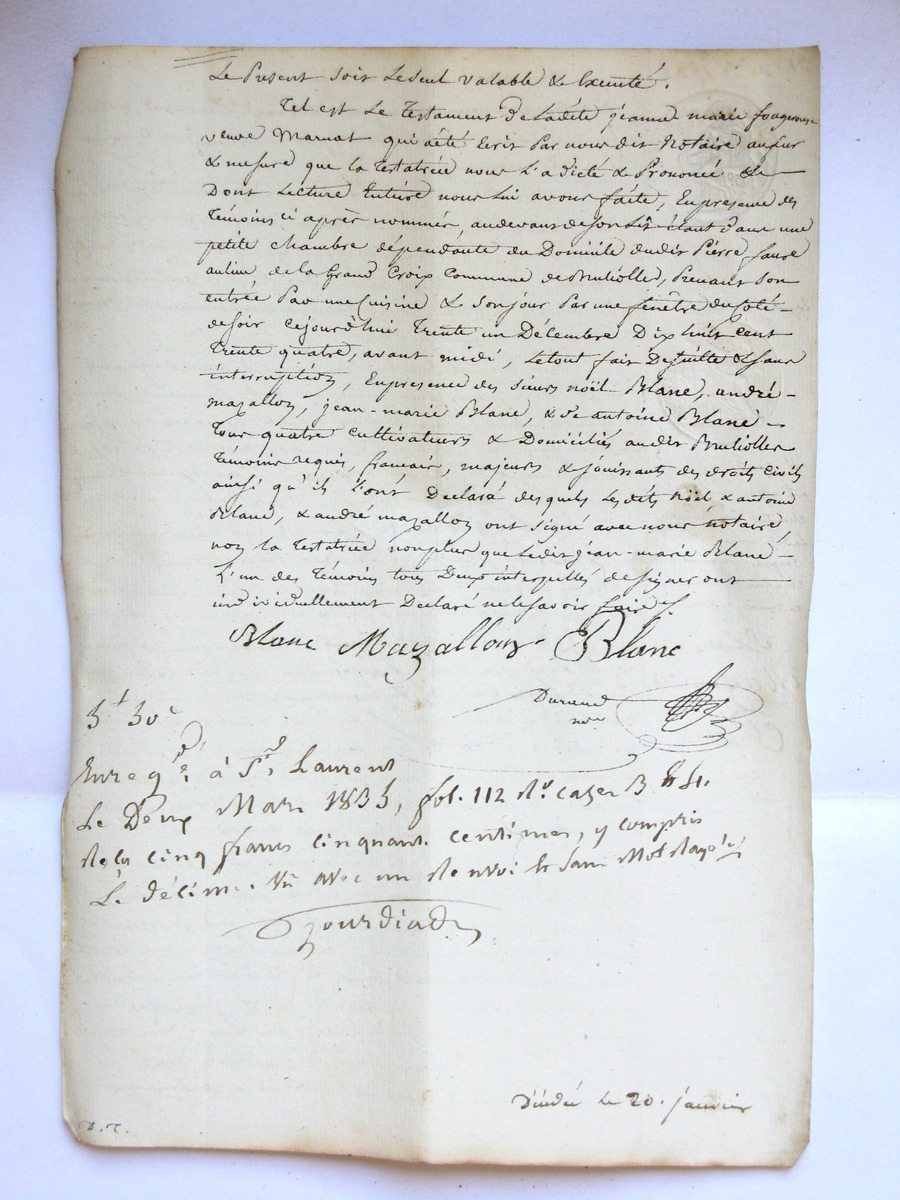 Le Present soit Le seul valable & Exécuté.
Tel est Le Testament de Ladite jeanne marie fougerouse
veuve Marnat qui a été Ecrit Par nous dit Notaire au fur
& mesure que la testatrice nous L'a dicté & Prononcé &
Dont Lecture Entière nous Lui avons faite, En presence des
Témoins ci après nommés, au devant de son Lit étant dans une
petite chambre dépendante du Domicile dudit Pierre faure
au lieu de la Grand Croix Commune de Brulliolle, Prenant son
entrée Par une Cuisine & son jour Par une fenêtre du Côté
de soir Cejourd'hui Trente un Décembre Dix huit cent
Trente quatre, avant midi, Le tout fait De suitte & sans
interruption, En presence des sieurs noël Blanc, andré
mazallon, jean-marie Blanc, & de antoine Blanc
Tous quatre Cultivateurs & Domiciliés audit Brulliolles
Témoins requis, français, majeurs & jouissants des droits Civils
ainsi qu'ils L'ont Declaré desquels Lesdits Noël & antoine
Blanc, & andré mazallon ont signé avec nous notaire,
non la Testatrice non plus que Ledit jean-marie Blanc
L'un des Témoins tous Deux interpellés de signer ont
individuellement Declaré ne le savoir faire.
Blanc Mazallon Blanc
Durand
nre
5f 50c
Enregé. à St. Laurent
Le Deux Mars 1835, fol. 112 Ro. cases 3 & 4.
Reçu cinq francs cinquante centimes, y compris
Le décime. Vu avec un Renvoi & sans Mot Rayé
Le 20. janvier